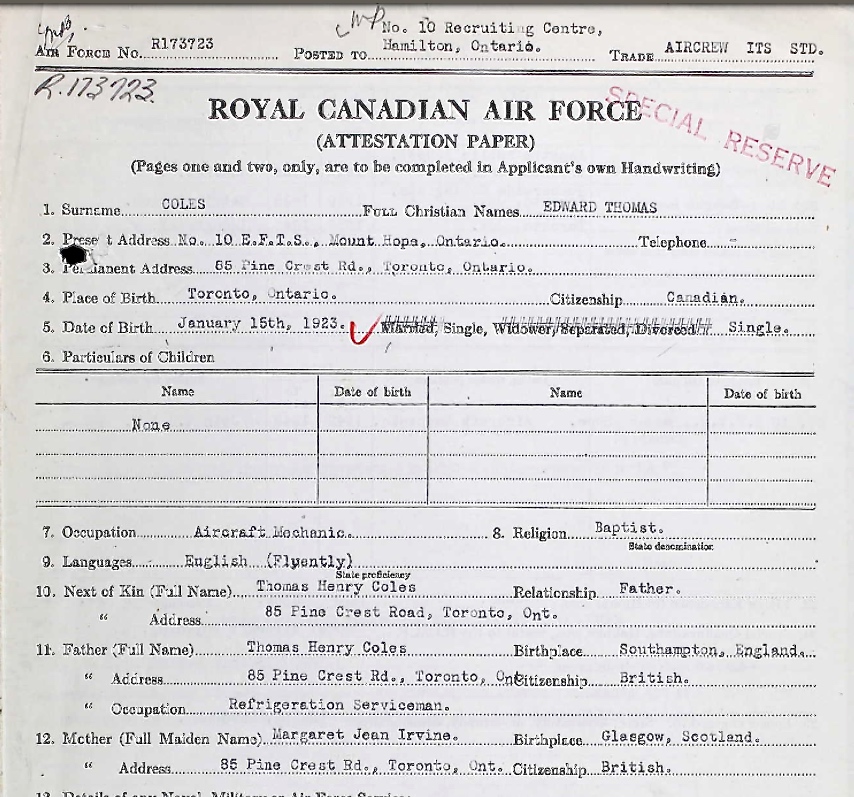 No. 10 Recruiting Centre,
AIR FORCE NO. R173723 POSTED TO Hamilton, Ontario. TRADE AIRCREW ITS STD.
R.173723.
ROYAL CANADIAN AIR FORCE
SPECIAL RESERVE
(ATTESTATION PAPER)
(Pages one and two, only, are to be completed in Applicant's own Handwriting)
1. Surname COLES FULL Christian Names EDWARD THOMAS
2. Prese t Address No. 10 E.F.T.S., Mount Hope, Ontario. Telephone -
3. Permanent Address 85 Pine Crest Rd., Toronto, Ontario.
4. Place of Birth Toronto, Ontario. Citizenship Canadian.
5. Date of Birth January 15th, 1923. Married, Single, Widower, Separated, Divorced Single.
6. Particulars of Children
Name Date of birth Name Date of birth
None
7. Occupation Aircraft Mechanic. 8. Religion Baptist.
State denomination
9. Languages English (Flyently)
State proficiency
10. Next of Kin (Full Name) Thomas Henry Coles Relationship Father.
" Address 85 Pine Crest Road, Toronto, Ont.
11. Father (Full Name) Thomas Henry Coles Birthplace Southampton, England.
" Address 85 Pine Crest Rd., Toronto, Ont. Citizenship British.
" Occupation Refrigeration Serviceman.
12. Mother (Full Maiden Name) Margaret Jean Irvine. Birthplace Glasgow, Scotland.
" Address 85 Pine Crest Rd., Toronto, Ont. Citizenship British.
13. Details of any Naval, Military or Air Force Service